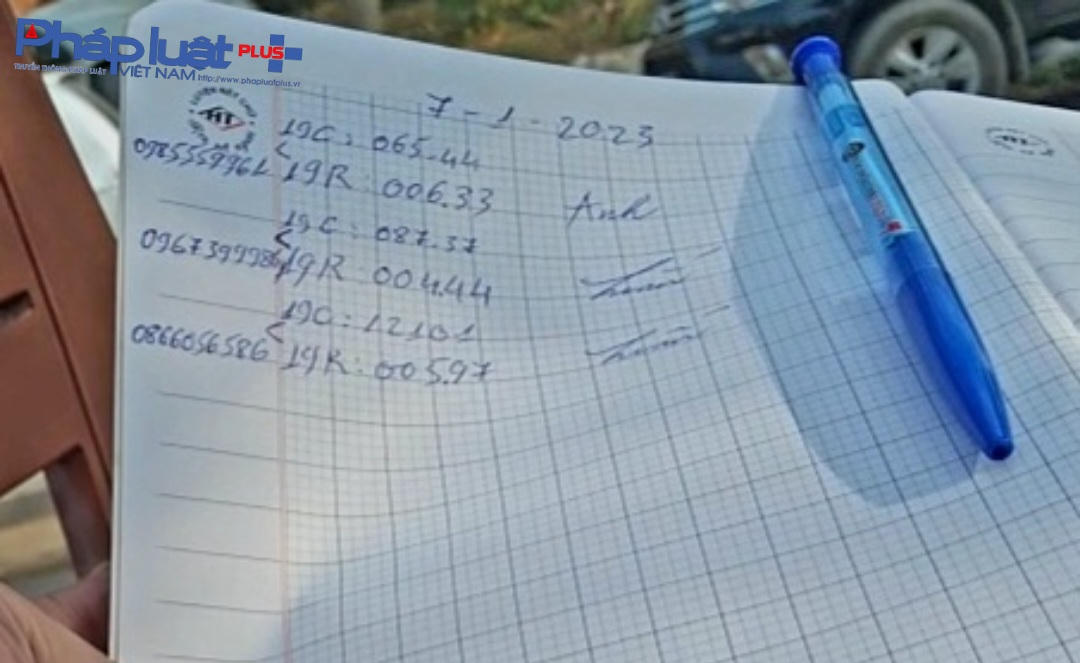 Pháp luật PLUS+
TRUYỀN THÔNG PHÁP LUẬT VIỆT NAM http://www.phapluatplus.vn
7-1-2023
19C: 065.44
19R: 006.33 Anh
19C: 087.37
19R: 004.44
19C: 12101
0866056586 19R: 005.97